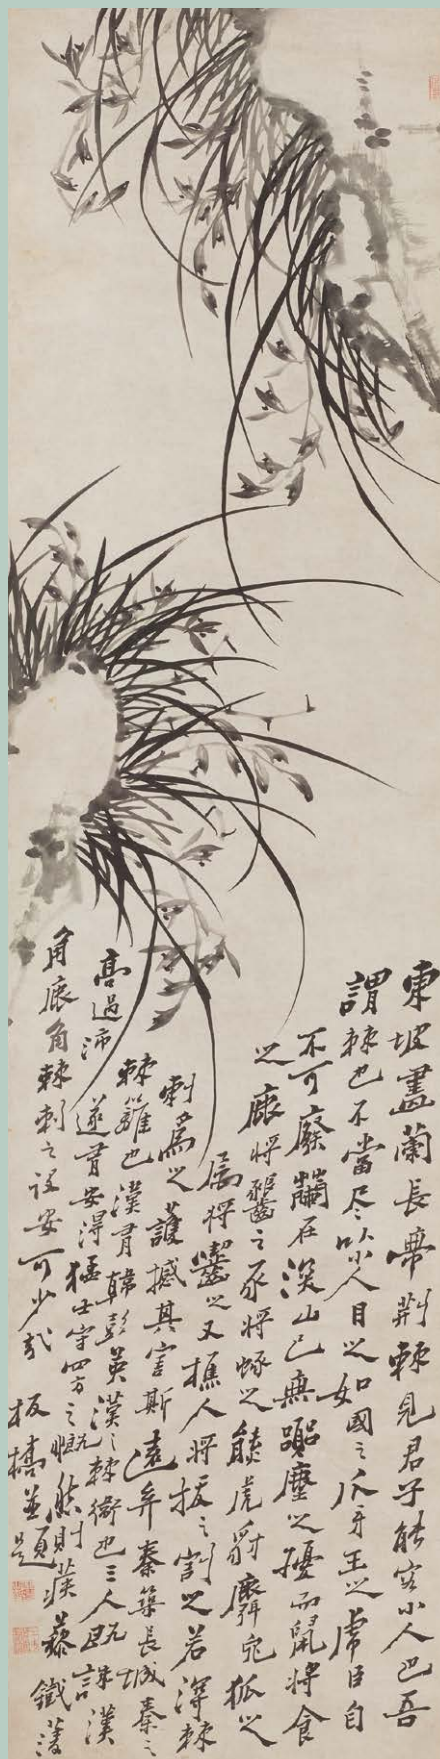 東坡畫蘭長帶荆棘見君子能容小人也吾
謂棘也不當尽以小人目之如國之爪牙王之虎臣自
不可廢蘭在深山已無囂塵之擾而鼠將食
之鹿將齧之豕將豗之熊虎豺麛兔狐之
屬將齧之又樵人將拔之割之若得棘
刺爲之護撼其害斯遠矣秦築長城秦之
棘籬也漢有韓彭英漢之棘衛也三人既誅漢
高過沛遂有安得猛士守四方之慨然則蒺藜鐵菱
角鹿角棘刺之設安可少哉
板橋並題